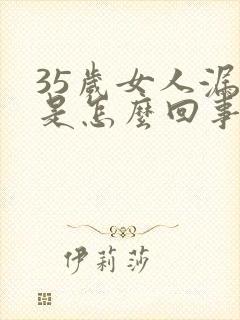 35歲女人漏
是怎麼回事
伊莉莎